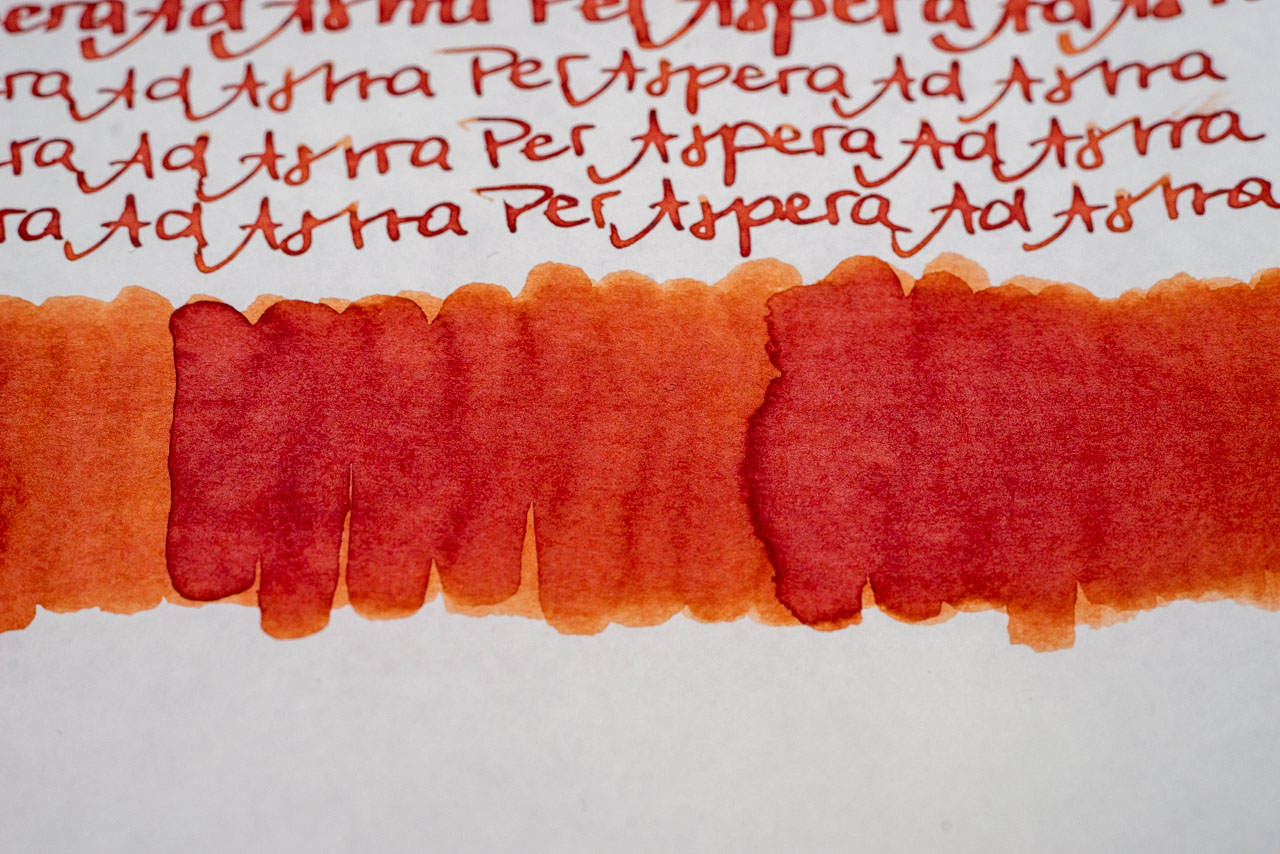 era Ad Astra Per Aspera Ad Astra
era Ad Astra Per Aspera Ad Astra
ra Ad Astra Per Aspera Ad Astra
ra Ad Astra Per Aspera Ad Astra